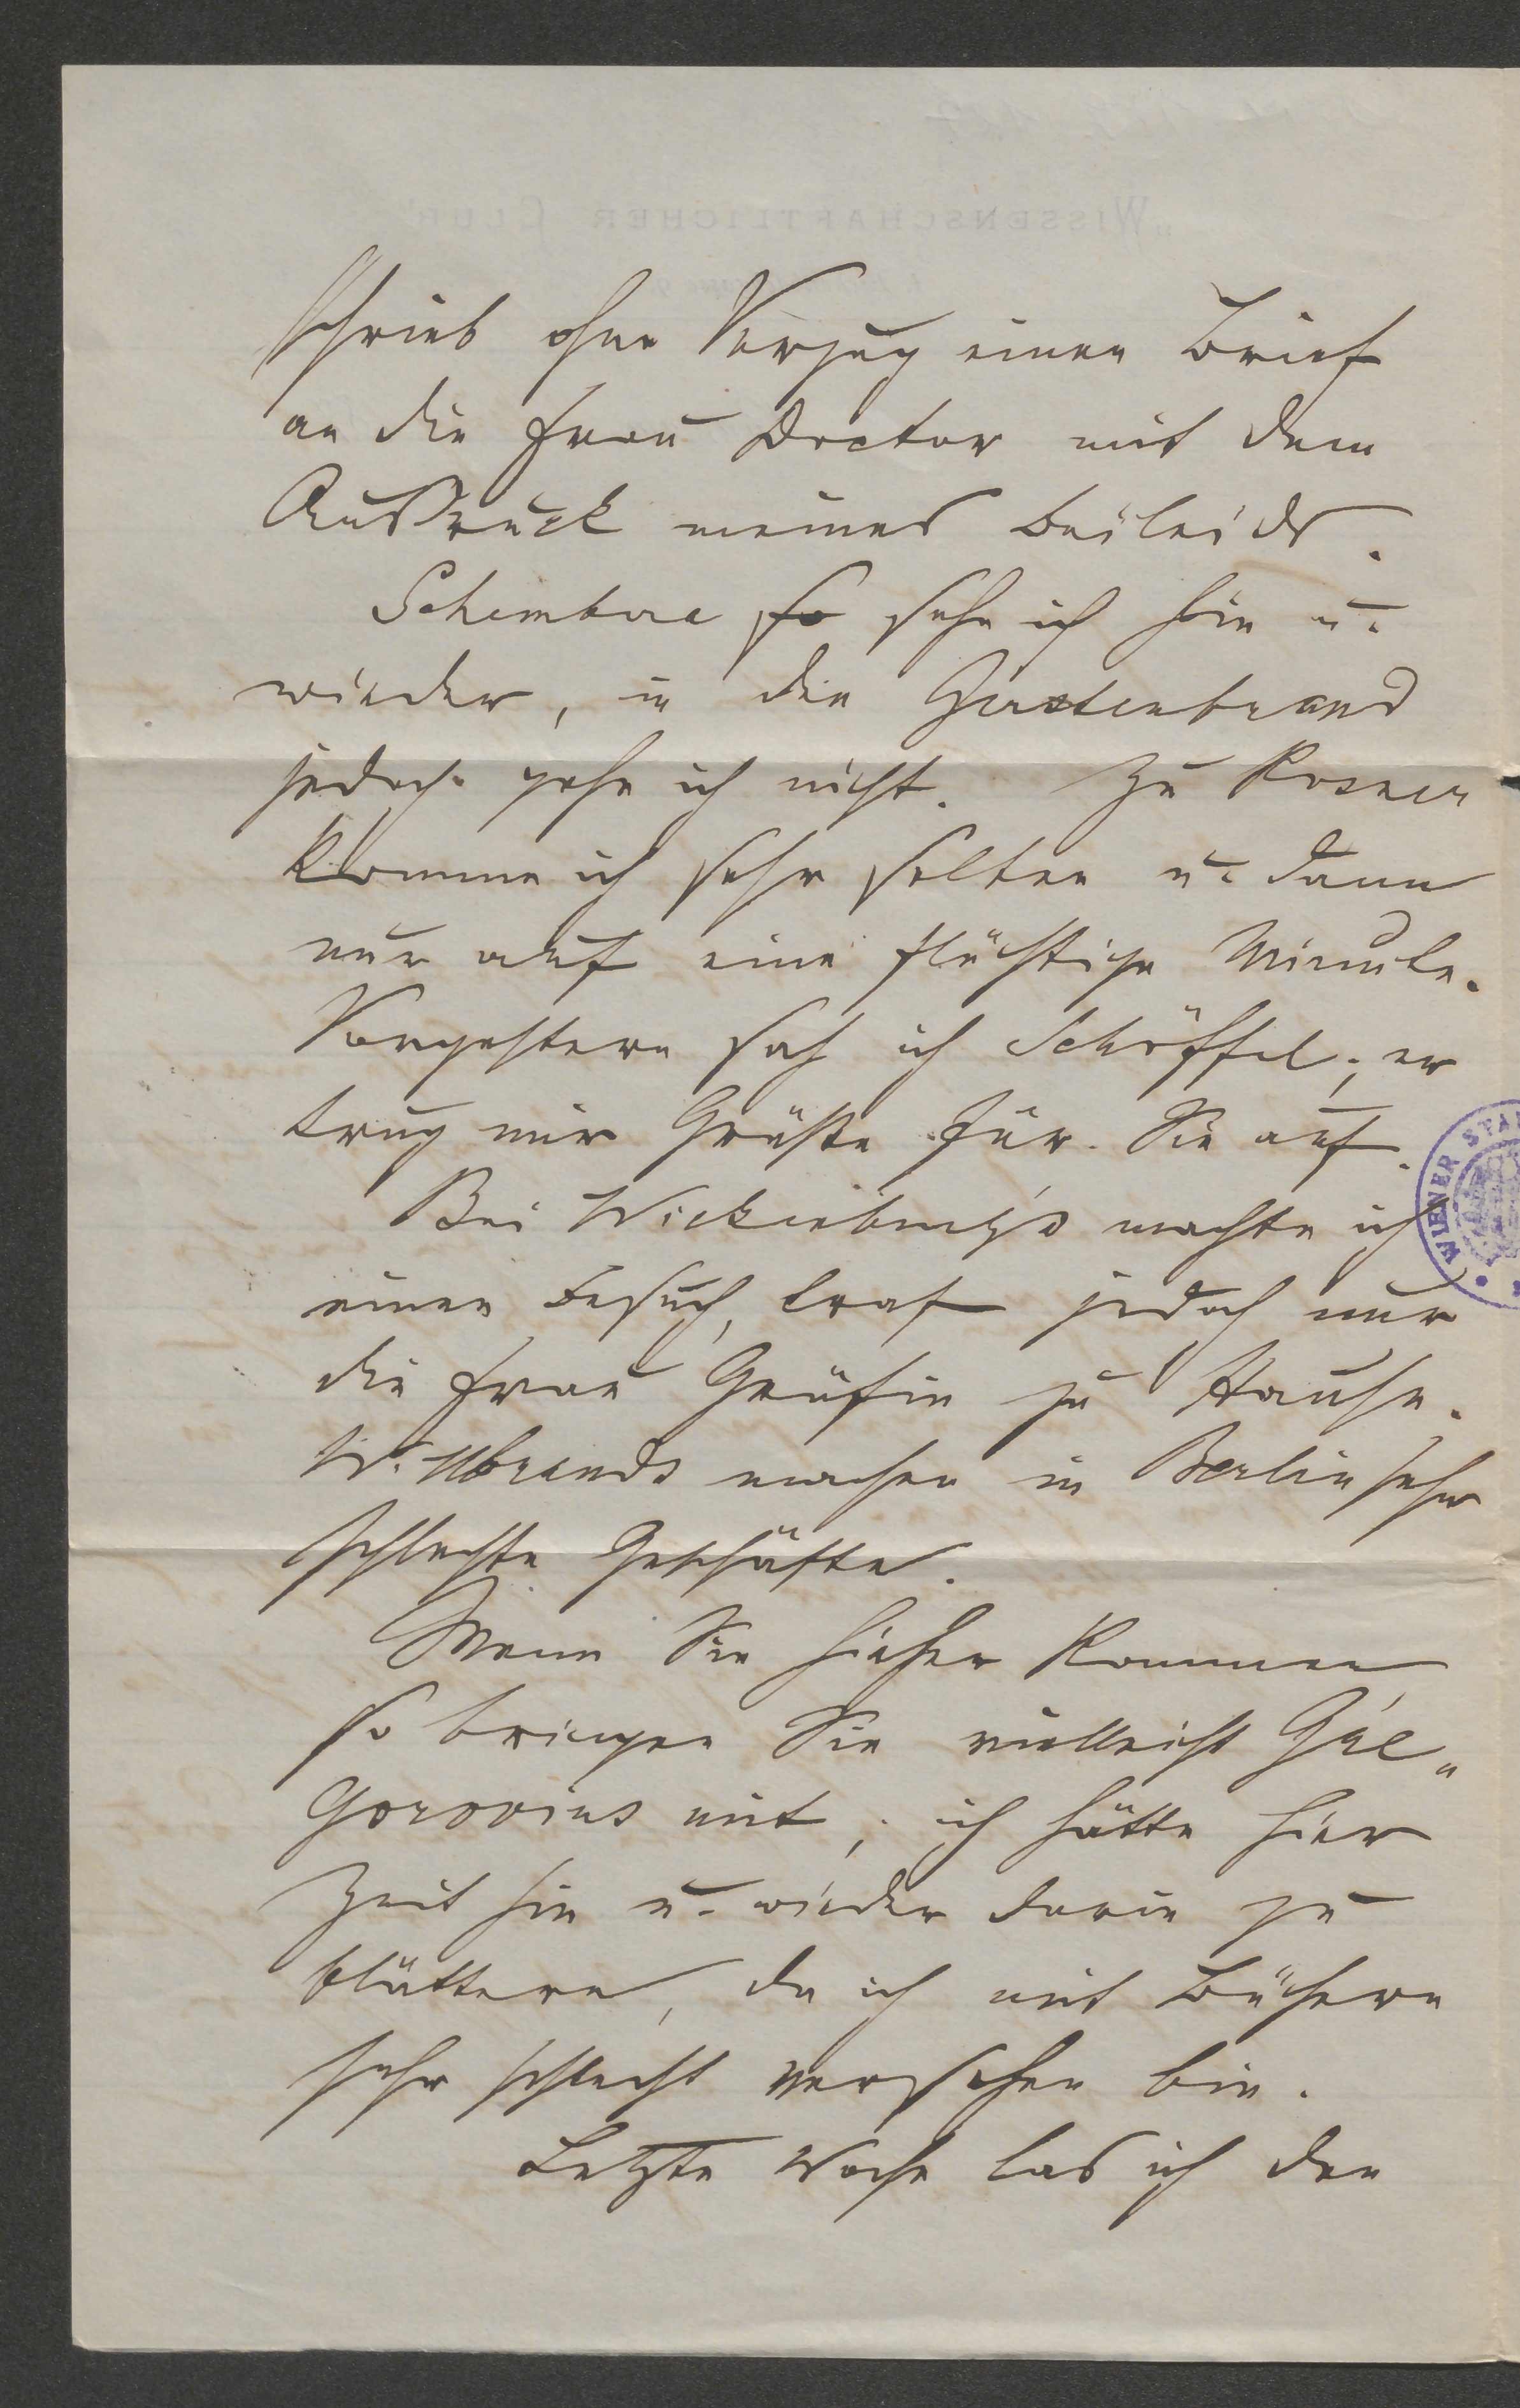 schrieb ohne Verzug einen Brief
an die Frau Doctor mit dem
Ausdruck meines Beileids.
Schembera so sehe ich hin u.
wieder, in den
jedoch gehe ich nicht. Zu Rosner
komme ich sehr selten u. dann
nur auf eine flüchtige Minute.
Vorgestern sah ich Schöffel; er
trug mir Grüße für Sie auf.
Bei Wickenburg's machte ich
einen Besuch, traf jedoch nur
die Frau Gräfin zu Hause.
Willbrandts machen in Berlin sehr
schlechte Geschäfte.
Wenn Sie hieher kommen,
so bringen Sie vielleicht
mit; ich hätte hier
Zeit hin u. wieder darin zu
blättern, da ich mit Büchern
sehr schlecht versehen bin.
Letzte Woche las ich den
WIENER STA